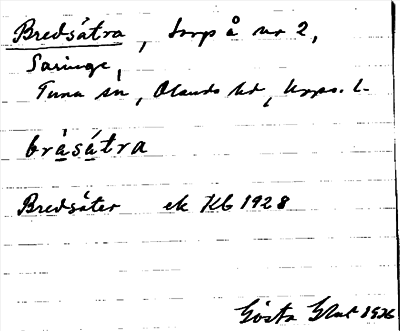 Bredsåtra, torp å nr 2,
Saringe,
Tuna sn, Olands hd, Upps. l.
bråsåtra
Bredsäter ek Kb 1928
Gösta 1936